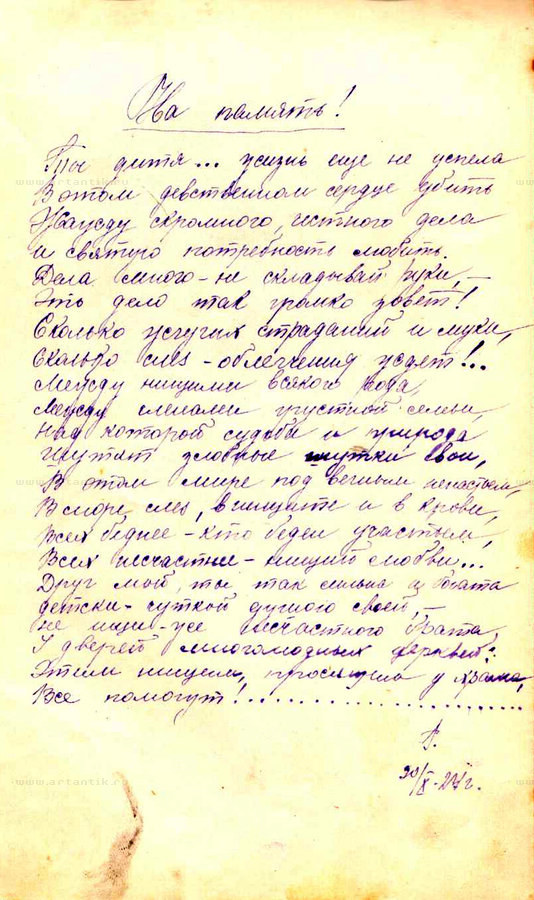 На память!
Ты дитя... жизнь еще не успела
В этом девственном сердце убить
Жажду скромного, честного дела
И святую потребность любить.
Дела много – не складывай руки, –
Это дело так громко зовет!
Сколько жгучих страданий и муки,
Сколько слез – облегчения ждет!..
Между нищими всякого рода,
Между членами грустной семьи,
Над которой судьба и природа
Шутят злобные шутки свои,
В этом мире под вечным ненастьем,
В море слез, в нищите и в крови,
Всех беднее – кто беден участьем,
Всех несчастнее – нищий любви...
Друг мой, ты так сильна и богата
Детски-чуткой душою своей, –
Не ищи-же несчастного брата
У дверей многолюдных церквей:
Этим нищим, просящим у храма,
Все помогут!......................
30/X-27г.
www.artantik.ru